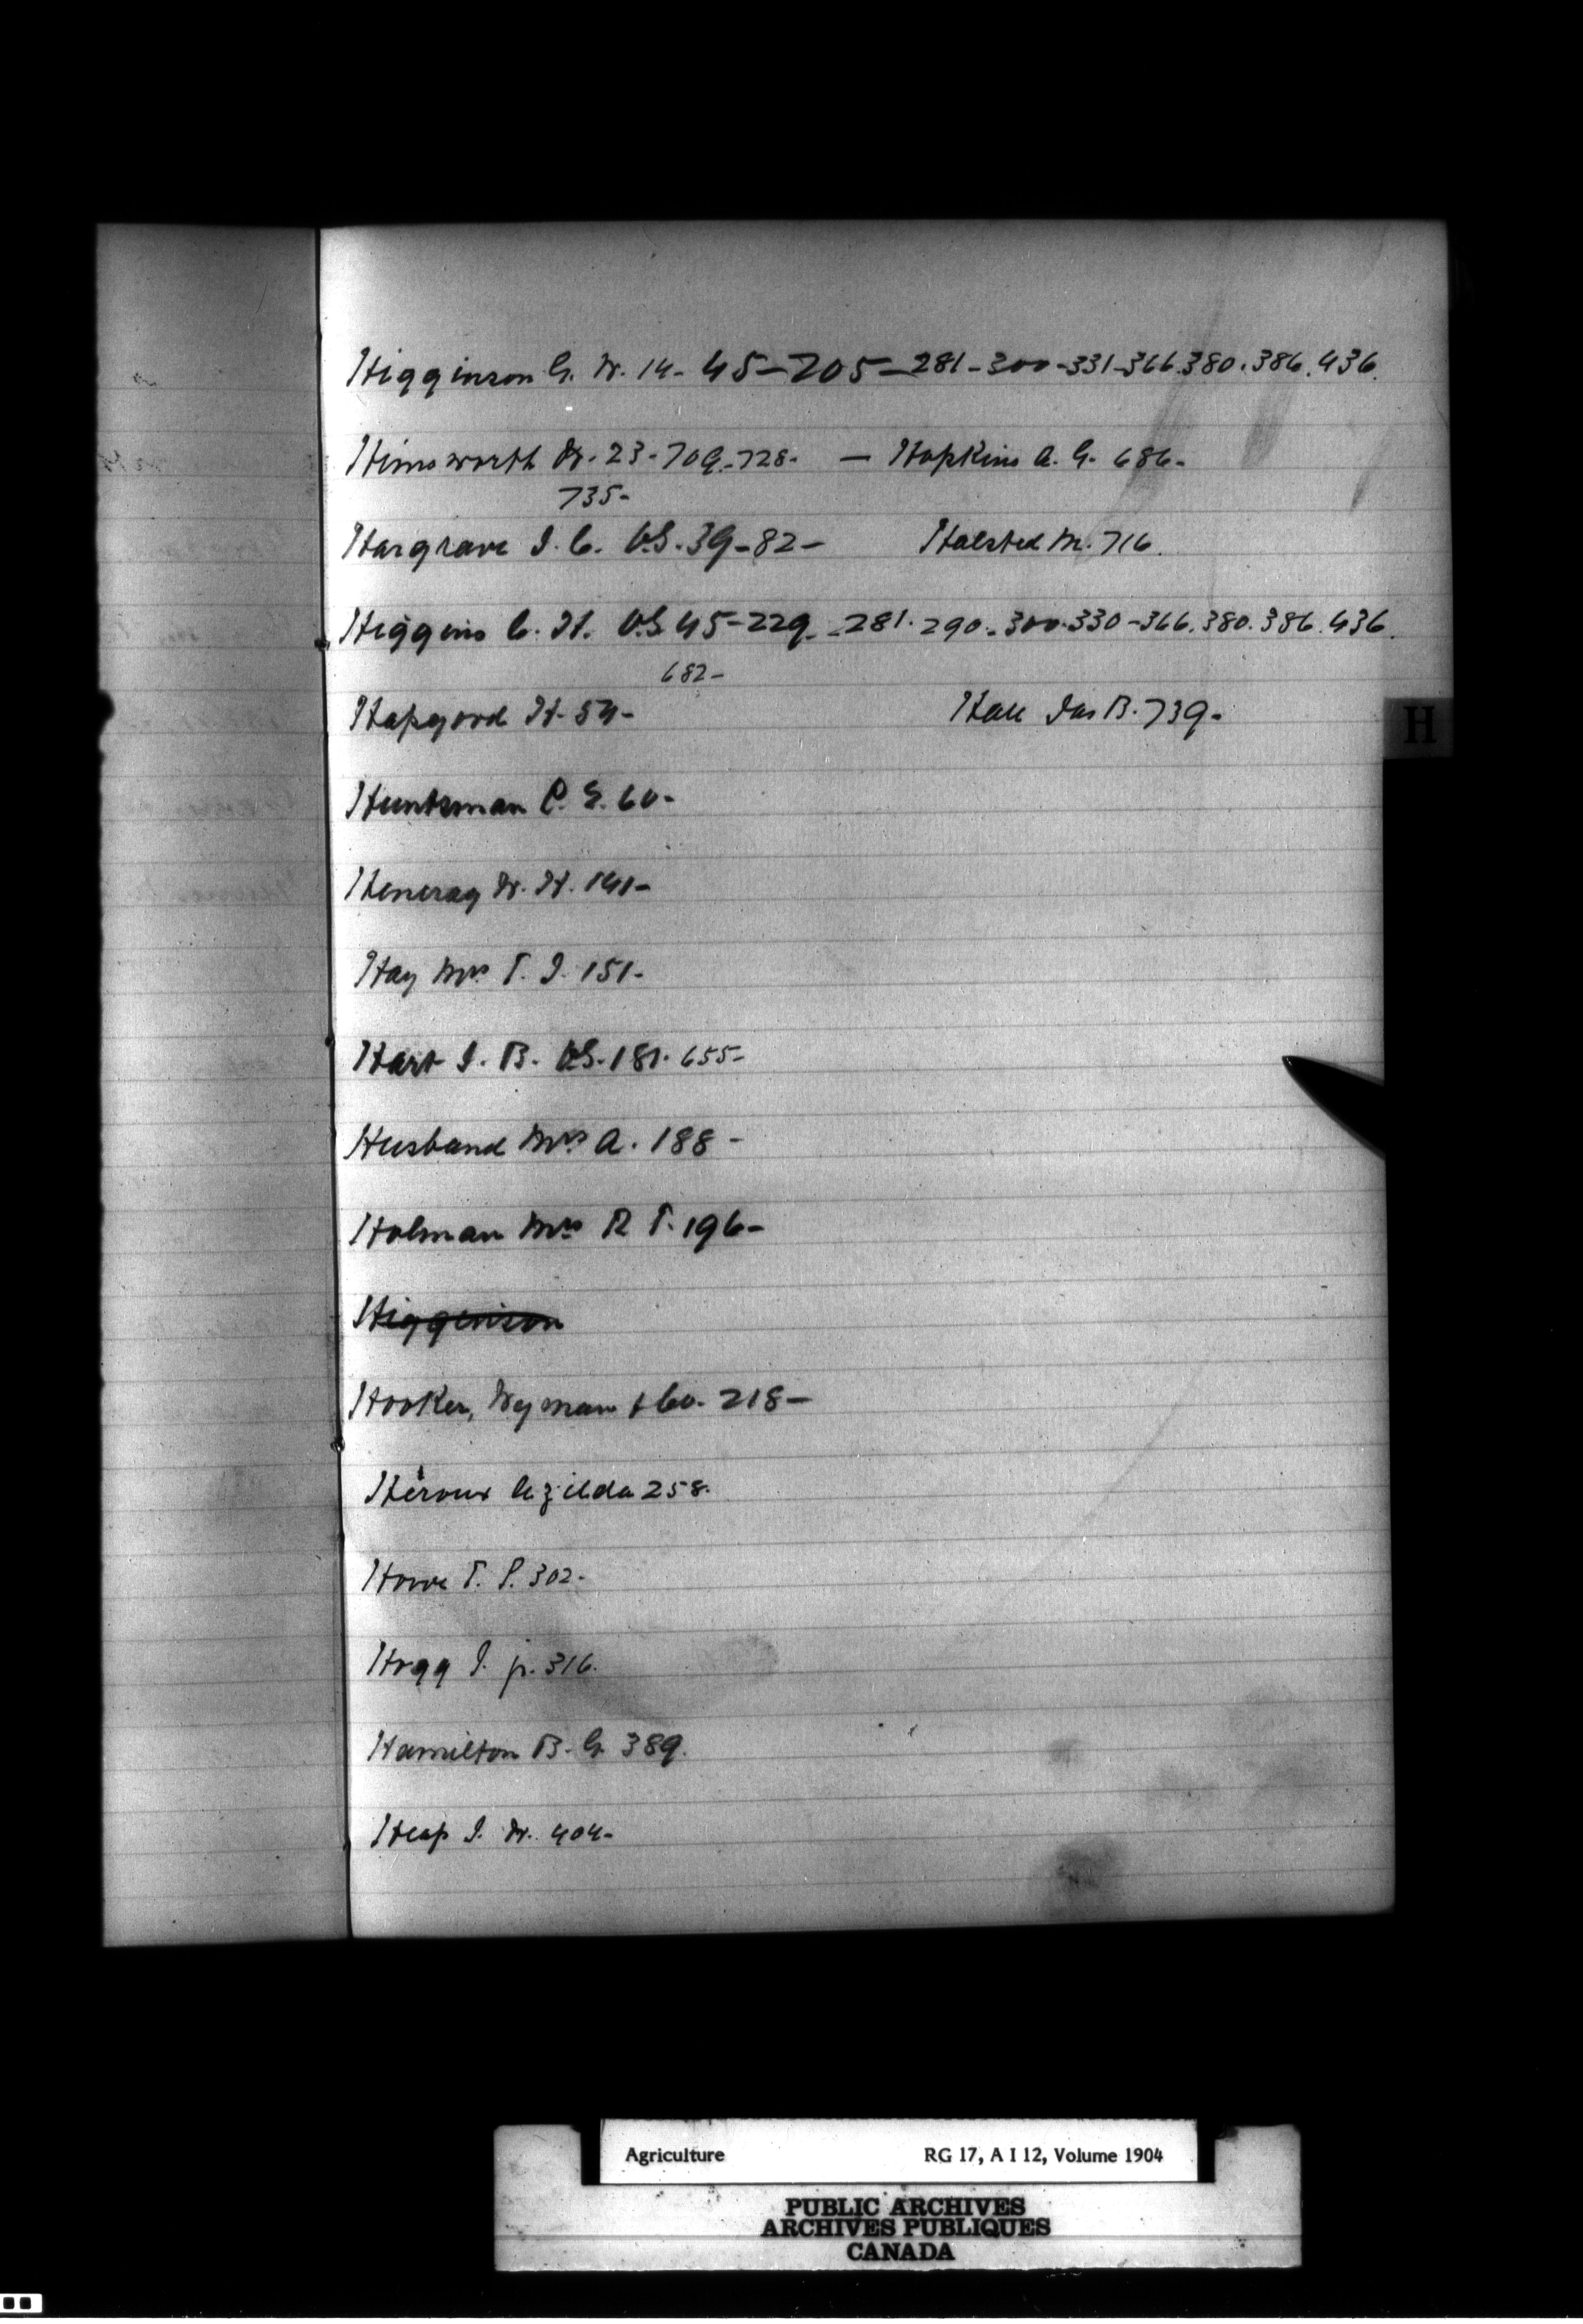 Higginson G. W. 14- 45-205-281-300-331-366.380.386.436.
Himsworth W. 23-709-728- — Hopkins A. G. 686-
735-
Hargrave J. C. V.S. 39-82- Halsted M. 716.
Higgins C. H. V.S. 45-229-281.290-300-330-366.380.386.436.
682-
Hapgood H. 54-
Hall Jas B. 739-
H
Huntsman C. E. 60-
Heneray W. H. 141-
Hay Mrs T. J. 151-
Hart J. B. V.S. 181. 655-
Husband Mrs A. 188-
Holman Mrs R T. 196-
Higginson
Hooker, Wyman & Co. 218-
Héroux Azilda 258.
Howe T. P. 302-
Hogg J. jr. 316.
Hamilton B. G. 389.
Heap J. W. 404-
Agriculture RG 17, A I 12, Volume 1904
PUBLIC ARCHIVES
ARCHIVES PUBLIQUES
CANADA